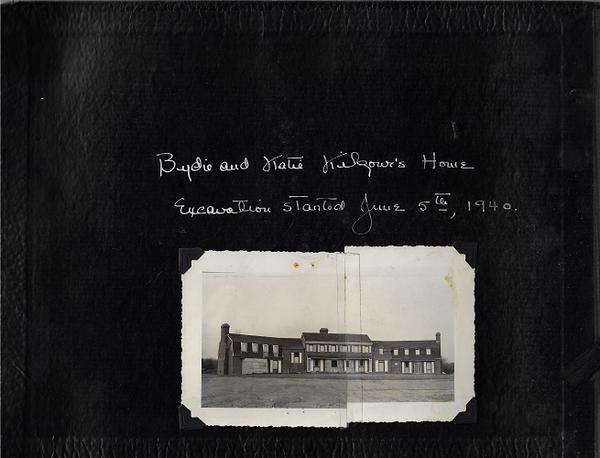 Bydie and Katie Kilgour's Home
Excavation started June 5th, 1940.